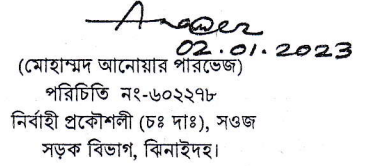 02.01.2023
(মোহাম্মদ আনোয়ার পারভেজ)
পরিচিতি নং-৬০২২৭৮
নির্বাহী প্রকৌশলী (চঃ দাঃ), সওজ
সড়ক বিভাগ, ঝিনাইদহ।